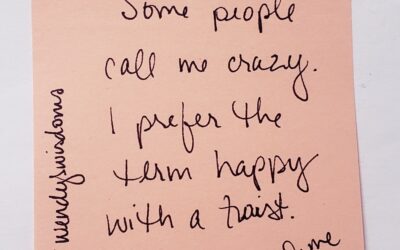 Some people
call me crazy.
I prefer the
term happy
with a twist.
me
wendyswisdoms